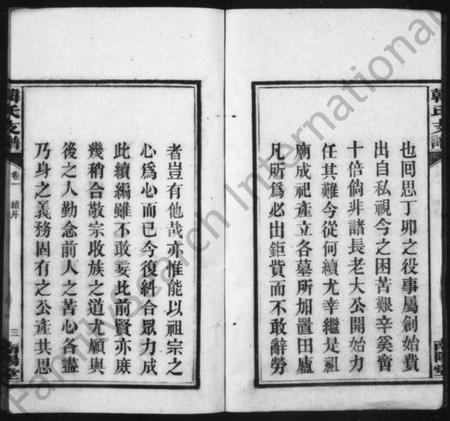 韓氏支譜
也回思丁卯之役事屬創始費
出自私視今之困苦艱辛奚啻
十倍倘非諸長老大公開始力
任其難今從何續尤幸繼是祖
廟成祀產立各墓所加置田廬
凡所爲必出鉅費而不敢辭勞
南陽堂
者豈有他哉亦惟能以祖宗之
心爲心而已今復糾合眾力成
此續編雖不敢妄比前賢亦庶
幾稍合敬宗收族之道尤願與
後之人勤念前人之苦心各盡
乃身之義務固有之公產共思
韓氏支譜
卷一
續序
三
南陽堂
FamilySearch International